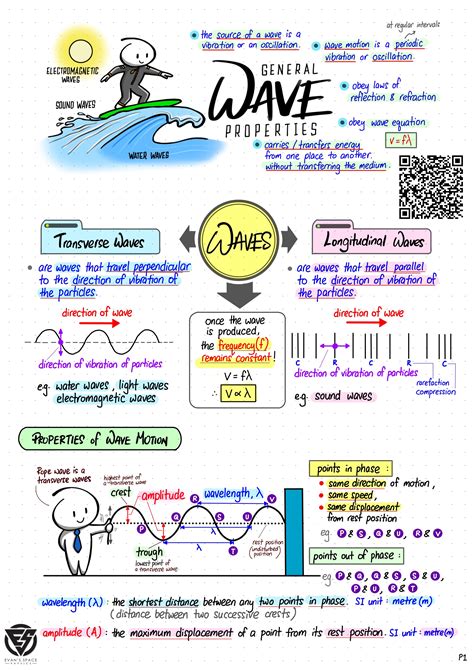 at regular intervals
• the source of a wave is a
vibration or an oscillation.
• wave motion is a periodic
vibration or oscillation.
ELECTROMAGNETIC
WAVES
SOUND WAVES
WATER WAVES
GENERAL
WAVE
PROPERTIES
• obey laws of
reflection & refraction
• obey wave equation
V = fλ
• carries / transfers energy
from one place to another.
without transferring the medium.
Transverse Waves
WAVES
Longitudinal Waves
• are waves that travel perpendicular
to the direction of vibration of
the particles.
direction of wave
direction of vibration of particles
eg. water waves, light waves
electromagnetic waves
once the wave
is produced,
the frequency(f)
remains constant!
V = fλ
∴ V ∝ λ
• are waves that travel parallel
to the direction of vibration of
the particles.
direction of wave
C R C R C
direction of vibration of particles
rarefaction
compression
eg. sound waves
PROPERTIES of WAVE MOTION
Rope wave is a
transverse waves
highest point of
a transverse wave
crest
amplitude
wavelength, λ
R V
P Q S U
T
λ
trough
lowest point of
a transverse wave
rest position
(undisturbed
position)
points in phase :
• same direction of motion,
• same speed,
• same displacement
from rest position
eg. P & S, Q & U, R & V
points out of phase :
eg. P & Q, Q & S, S & U
P & U, R & T, T & V
wavelength (λ) : the shortest distance between any two points in phase. SI unit : metre (m)
(distance between two successive crests)
amplitude (A) : the maximum displacement of a point from its rest position. SI unit : metre (m)
EVAN'S SPACE
P1